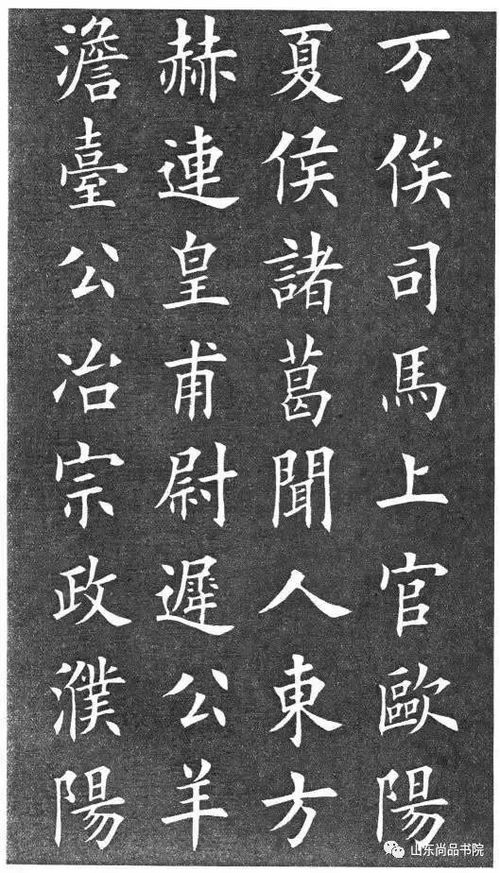 万俟司馬上官歐陽
夏侯諸葛聞人東方
赫連皇甫尉遲公羊
澹臺公冶宗政濮陽
山东尚品书院